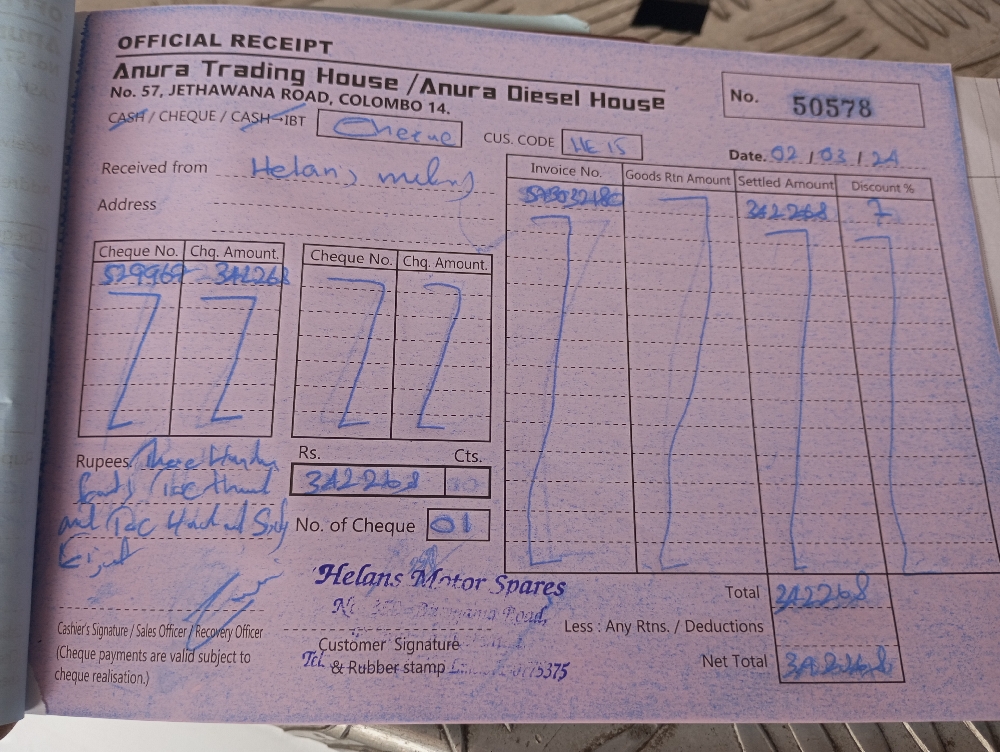 OFFICIAL RECEIPT
Anura Trading House / Anura Diesel House
No. 57, JETHAWANA ROAD, COLOMBO 14.
No. 50578
CASH / CHEQUE / CASH-IBT Cheque
CUS. CODE HE 15
Date. 02 / 03 / 24
Received from Helans
Address
Invoice No. Goods Rtn Amount Settled Amount Discount %
342268 7
Cheque No. Chq. Amount. Cheque No. Chq. Amount.
529969 342268
Rupees Three Hundred
and Two Hundred Sixty
Eight
Rs. Cts.
342268 00
No. of Cheque 01
Helans Motor Spares
Road,
Total 342268
Less : Any Rtns. / Deductions
Net Total 342268
Cashier's Signature / Sales Officer / Recovery Officer
(Cheque payments are valid subject to
cheque realisation.)
Customer Signature
Tel.
& Rubber stamp